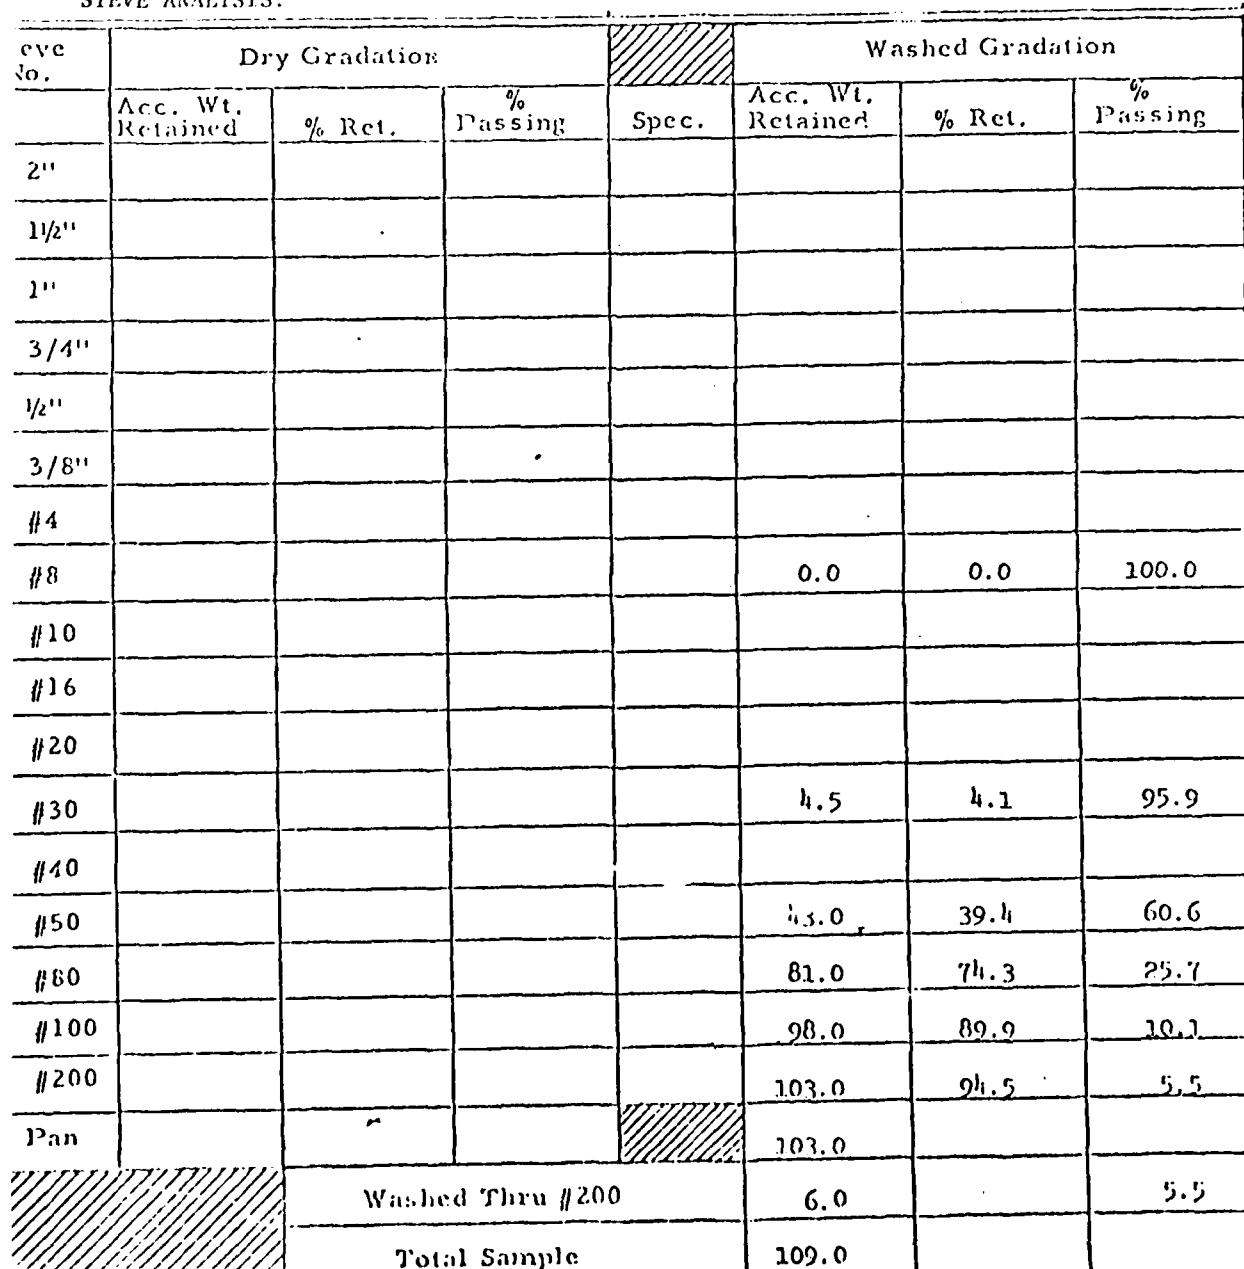 SIEVE ANALYSIS:
eve No. Dry Gradation Washed Gradation
Acc. Wt. Retained % Ret. % Passing Spec. Acc. Wt. Retained % Ret. % Passing
2"
1½"
1"
3/4"
½"
3/8"
#4
#8 0.0 0.0 100.0
#10
#16
#20
#30 4.5 4.1 95.9
#40
#50 43.0 39.4 60.6
#80 81.0 74.3 25.7
#100 98.0 89.9 10.1
#200 103.0 94.5 5.5
Pan 103.0
Washed Thru #200 6.0 5.5
Total Sample 109.0